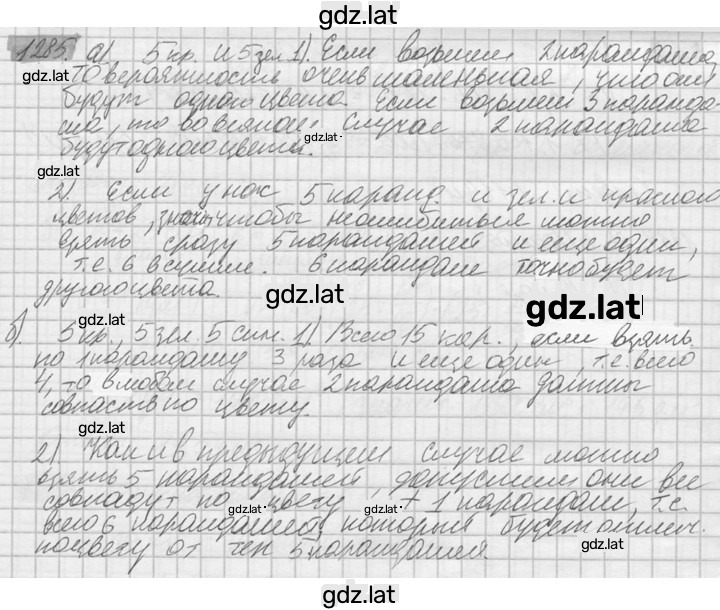 gdz.lat
1285. а) 5 кр. и 5 зел. 1). Если возьмем 2 карандаша,
gdz.lat
то вероятность очень маленькая, что они
будут одного цвета. Если возьмем 3 каранда
ша, то во всяком случае 2 карандаша
gdz.lat
будут одного цвета.
gdz.lat
2). Если у нас 5 каранд. и зел. и красного
цветов, значит чтобы не ошибиться можно
взять сразу 5 карандашей и еще один,
т.е. 6 в сумме. 6 карандаш точно будет
другого цвета.
gdz.lat
gdz.lat
gdz.lat
б). 5 кр., 5 зел. 5 син. 1). Всего 15 кар., если взять
по 1 карандашу 3 раза и еще один, т.е. всего
4, то в любом случае 2 карандаша должны
совпасть по цвету.
gdz.lat
2) Как и в предыдущем случае можно
взять 5 карандашей, допустим они все
gdz.lat
совпадут по цвету, + 1 карандаш, т.е.
gdz.lat gdz.lat
всего 6 карандашей, который будет отлич.
по цвету от тех 5 карандашей.
gdz.lat